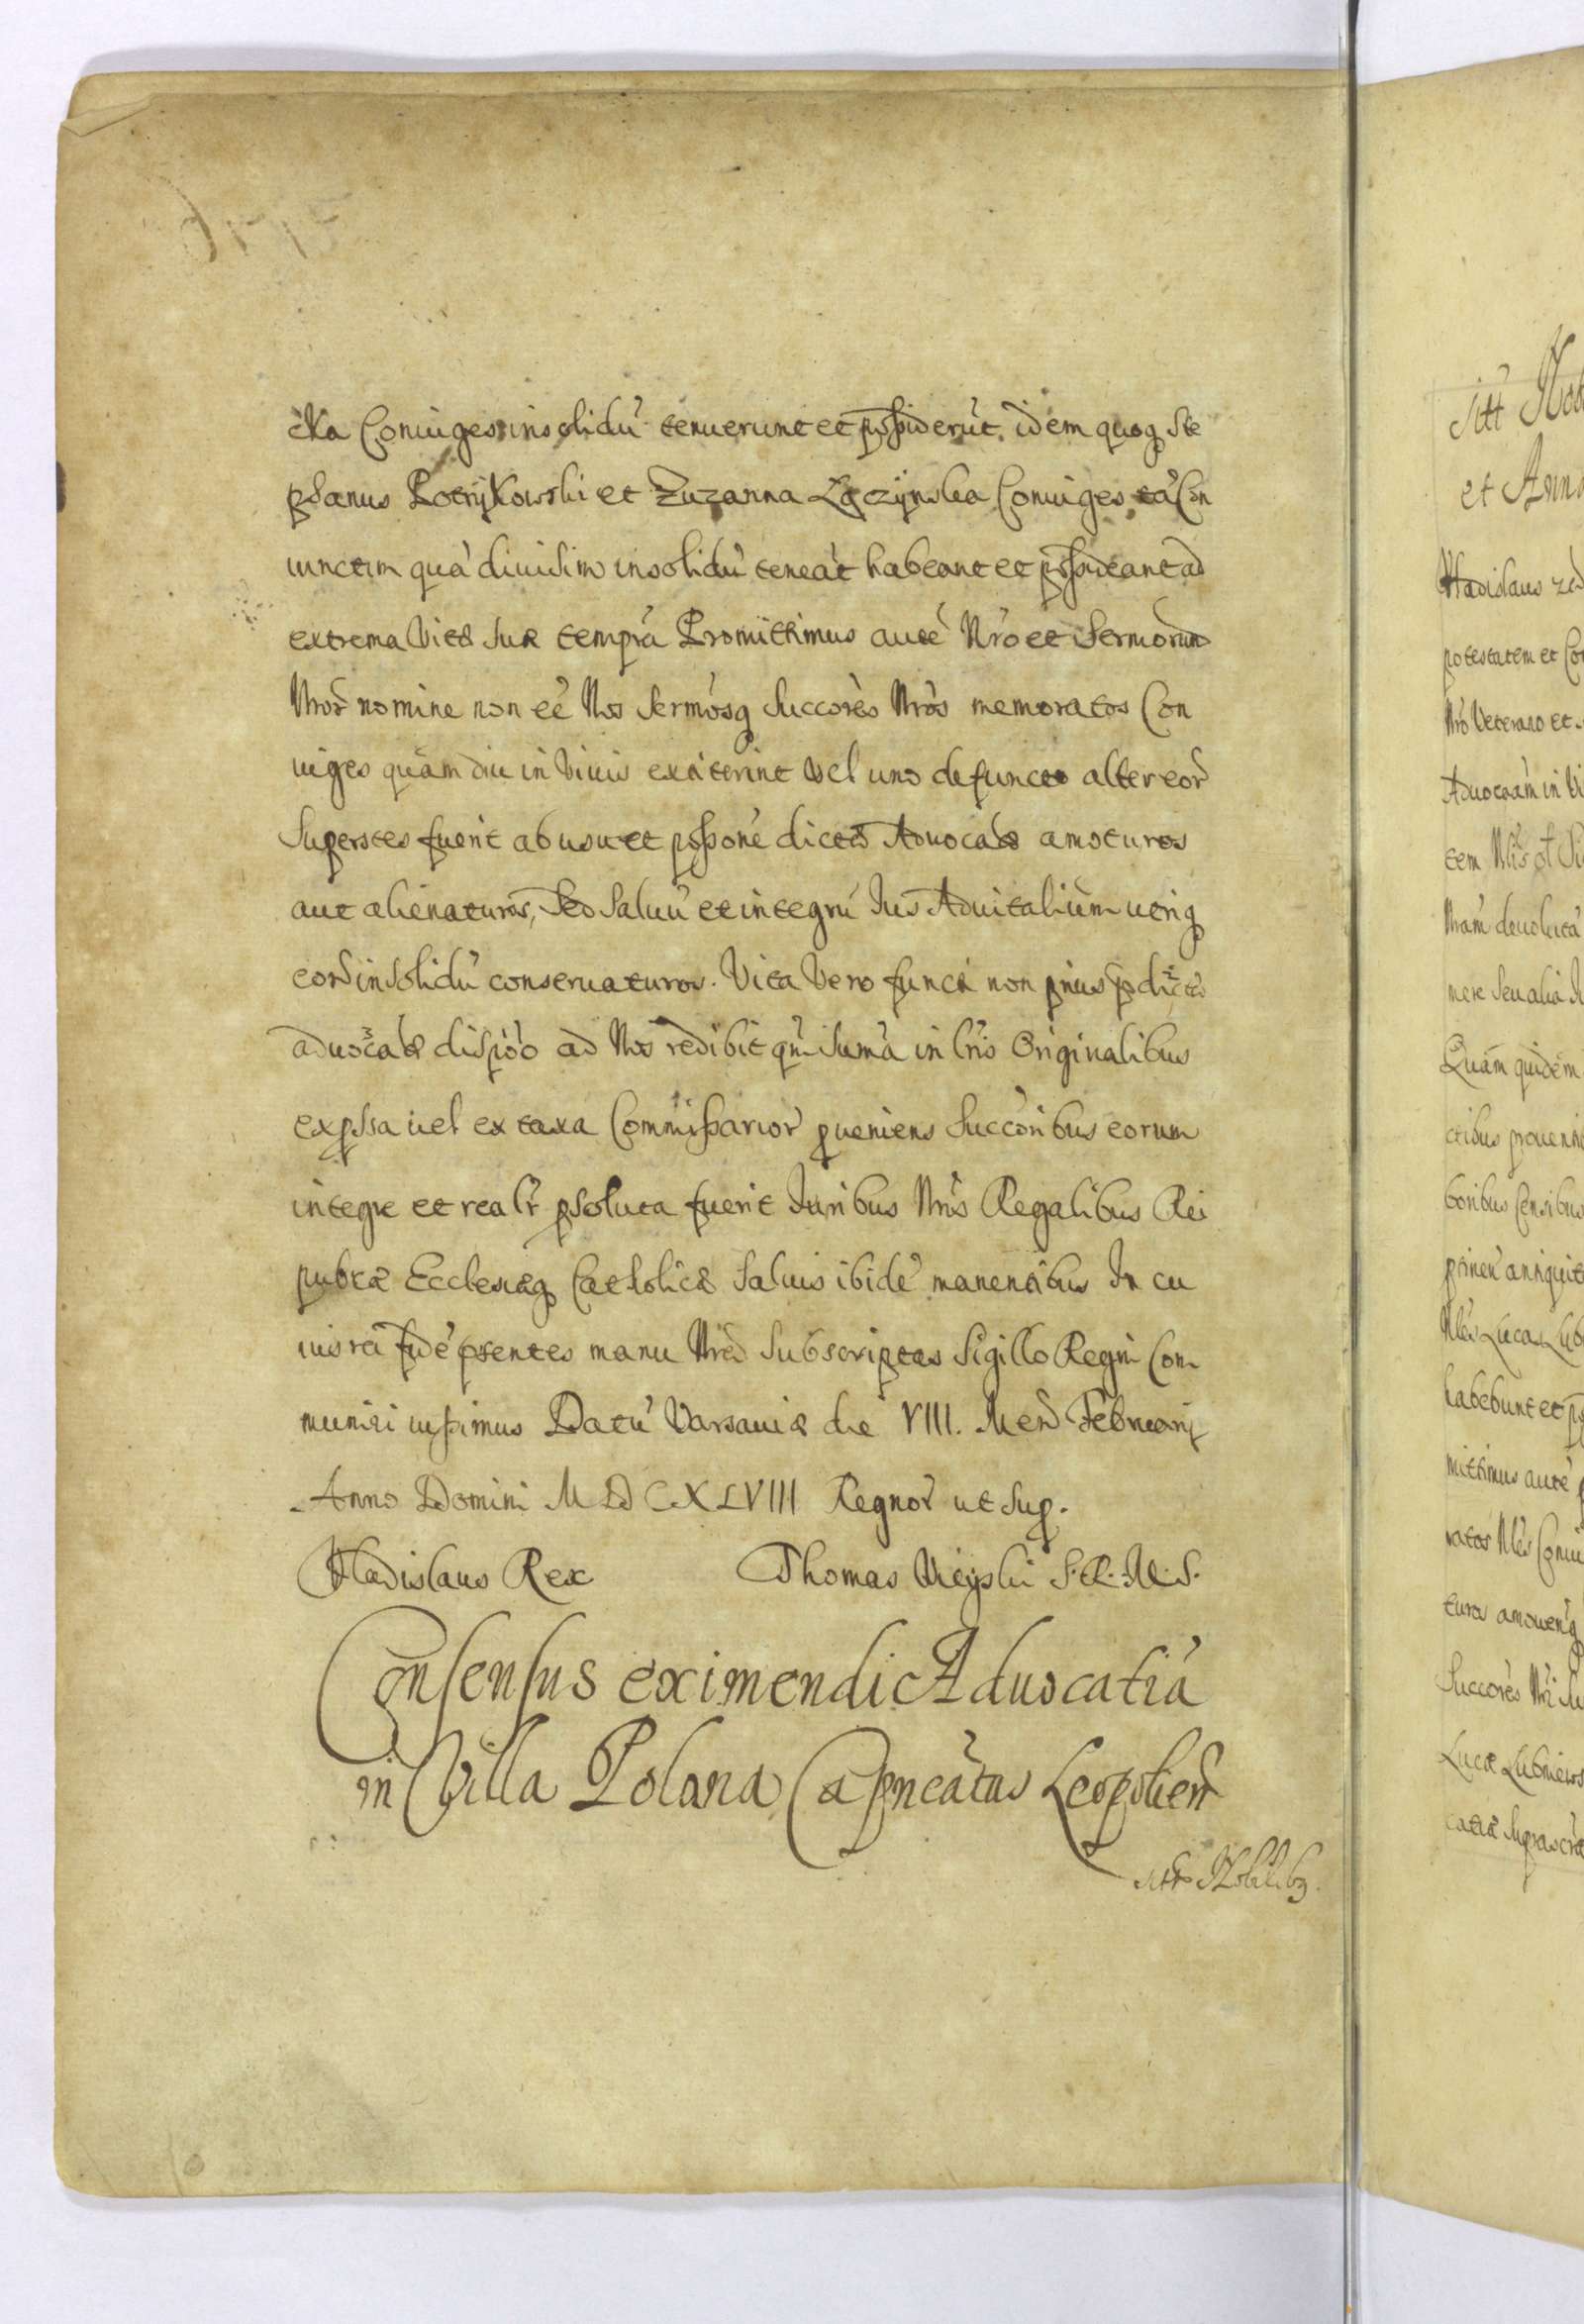 cka Coniuges insolidũ tenuerunt et possiderũt. idem quoq Ste
phanus Potrykowski et Zuzanna Łączynska Coniuges tã Con
iunctim quã diuisim insolidũ teneãt habeant et possideant ad
extrema vitæ suæ tempra Promittimus autẽ Nro et Sermorum
Nror nomine non eẽ Nos Sermosq Succores Nros memoratos Con
iuges quam diu in viuis extiterint vel uno defuncto alter eor
Superstes fuerit ab usu et possone dictæ Aduocatæ amoturos
aut alienaturos, Sed saluũ et integrũ Ius Aduitalium utriq
eord insolidũ conseruaturos. Vita vero functi non prius pdictæ
aduocatæ dispoo ad Nos redibit qm Suma in lris Originalibus
expssa vel ex taxa Commissarior pueniens Succoribus eorum
integre et realr psoluta fuerit Iuribus Nris Regalibus Rei
pubcæ Ecclesiæq Catholicæ saluis ibidẽ manentibus In cu
ius rei fidẽ psentes manu Nra Subscriptas Sigillo Regni Com
muniri iussimus Datũ Varsauiæ die VIII. Mens Februarij
Anno Domini M D C X L V III Regnor ut sup.
Vladislaus Rex Thomas Uieyski S. R. M. S.
Consensus eximendi Aduocatiã
in Villa Polana Capneatus Leopolien
Nobilibq
Sitt Nob
et Anna
Vladislaus
potestatem et Co
Nro Veterano et
Aduocaam in Vi
tem
Nram deuoluta
mere seu alia
Quam quidem
ctibus prouen
boribus Censibus
antiquit
Nles Lucas Lub
habebunt et
mittimus autẽ
ratos Nles Coniu
turos amouen
Succores Nri Su
Lucæ Lubniews
catiæ suprascr